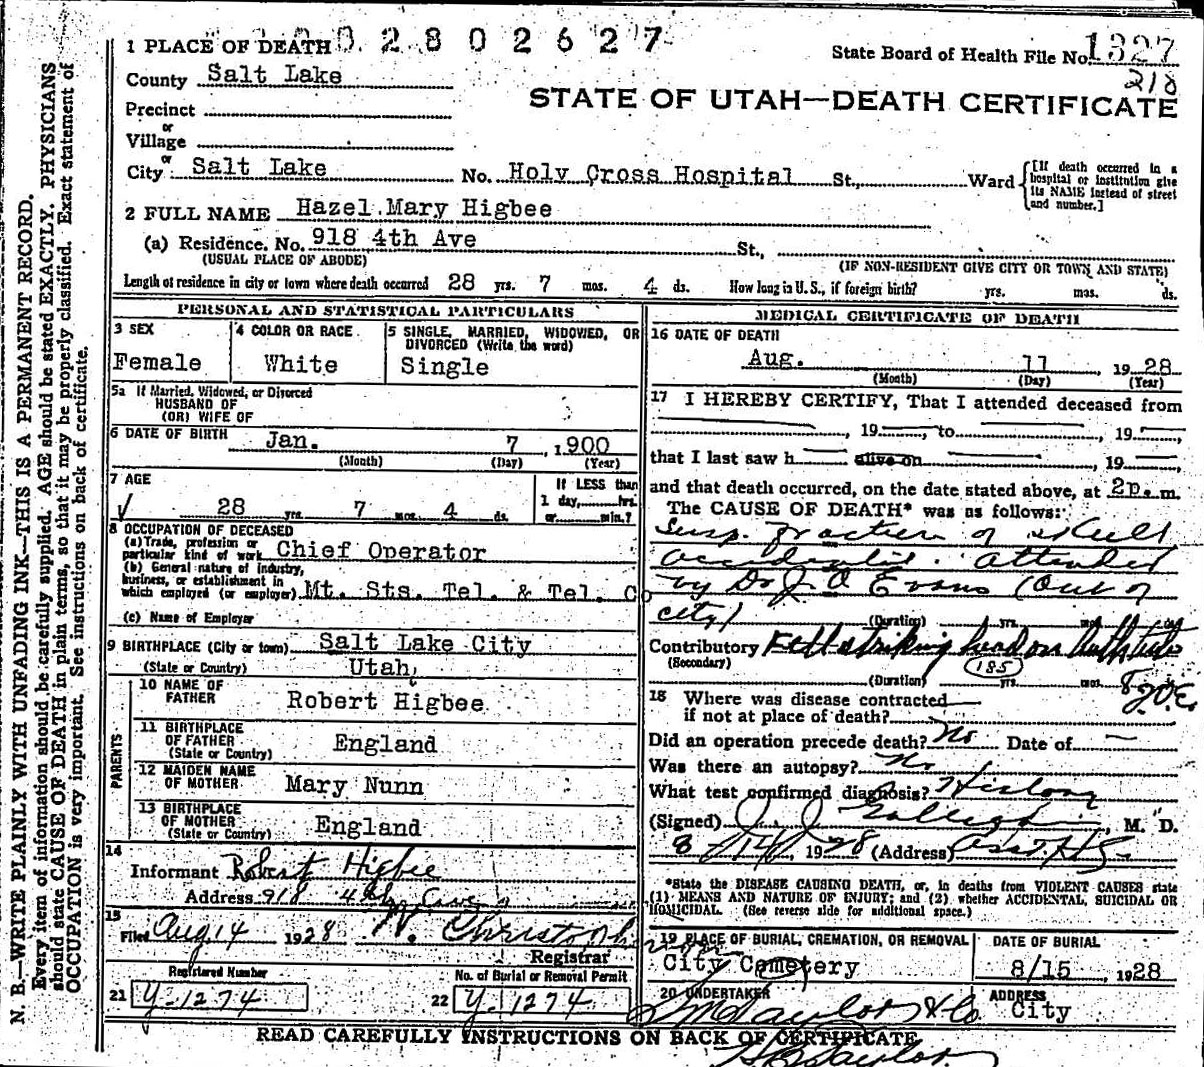 1 PLACE OF DEATH 0 0 2 8 0 2 6 2 7
State Board of Health File No. 1327
218
County Salt Lake
STATE OF UTAH—DEATH CERTIFICATE
Precinct
or
Village
or
City Salt Lake No. Holy Cross Hospital St., Ward
[If death occurred in a hospital or institution give its NAME instead of street and number.]
2 FULL NAME Hazel Mary Higbee
(a) Residence. No. 918 4th Ave St.,
(USUAL PLACE OF ABODE) (IF NON-RESIDENT GIVE CITY OR TOWN AND STATE)
Length of residence in city or town where death occurred 28 yrs. 7 mos. 4 ds. How long in U. S., if foreign birth? yrs. mos. ds.
PERSONAL AND STATISTICAL PARTICULARS
3 SEX
Female
4 COLOR OR RACE
White
5 SINGLE, MARRIED, WIDOWED, OR DIVORCED (Write the word)
Single
5a If Married, Widowed, or Divorced
HUSBAND OF
(OR) WIFE OF
6 DATE OF BIRTH Jan. 7, 1900
(Month) (Day) (Year)
7 AGE
28 yrs. 7 mos. 4 ds.
If LESS than
1 day, hrs.
or min.?
8 OCCUPATION OF DECEASED
(a) Trade, profession or
particular kind of work Chief Operator
(b) General nature of industry,
business, or establishment in
which employed (or employer) Mt. Sts. Tel. & Tel. Co
(c) Name of Employer
9 BIRTHPLACE (City or town) Salt Lake City
(State or Country) Utah
PARENTS
10 NAME OF
FATHER Robert Higbee
11 BIRTHPLACE
OF FATHER England
(State or Country)
12 MAIDEN NAME
OF MOTHER Mary Nunn
13 BIRTHPLACE
OF MOTHER England
(State or Country)
14
Informant Robert Higbee
Address 918 4th Ave
15
Filed Aug 14 1928 W. Christoph
Registrar
Registered Number
21 Y-1274
No. of Burial or Removal Permit
22 Y-1274
MEDICAL CERTIFICATE OF DEATH
16 DATE OF DEATH
Aug. 11 1928
(Month) (Day) (Year)
17 I HEREBY CERTIFY, That I attended deceased from
, 19 , to , 19 ,
that I last saw h alive on , 19
and that death occurred, on the date stated above, at 2p. m.
The CAUSE OF DEATH* was as follows:
Susp. fracture of skull
accidental. attended
by Dr J. O Evans (Out of
city)
(Duration) yrs. mos. ds.
Contributory Fell striking head on bathtub
(Secondary)
185
(Duration) yrs. mos.
18 Where was disease contracted
if not at place of death?
Did an operation precede death? No Date of —
Was there an autopsy? No
What test confirmed diagnosis? History
(Signed) J. J. Galligan, M. D.
8/14, 1928 (Address) Asst. H.
*State the DISEASE CAUSING DEATH, or, in deaths from VIOLENT CAUSES state
(1) MEANS AND NATURE OF INJURY; and (2) whether ACCIDENTAL, SUICIDAL OR
HOMICIDAL. (See reverse side for additional space.)
19 PLACE OF BURIAL, CREMATION, OR REMOVAL
City Cemetery
DATE OF BURIAL
8/15, 1928
20 UNDERTAKER
Taylor & Co
ADDRESS
City
READ CAREFULLY INSTRUCTIONS ON BACK OF CERTIFICATE
Taylor
N. B.—WRITE PLAINLY WITH UNFADING INK—THIS IS A PERMANENT RECORD.
Every item of information should be carefully supplied. AGE should be stated EXACTLY. PHYSICIANS
should state CAUSE OF DEATH in plain terms, so that it may be properly classified. Exact statement of
OCCUPATION is very important. See instructions on back of certificate.